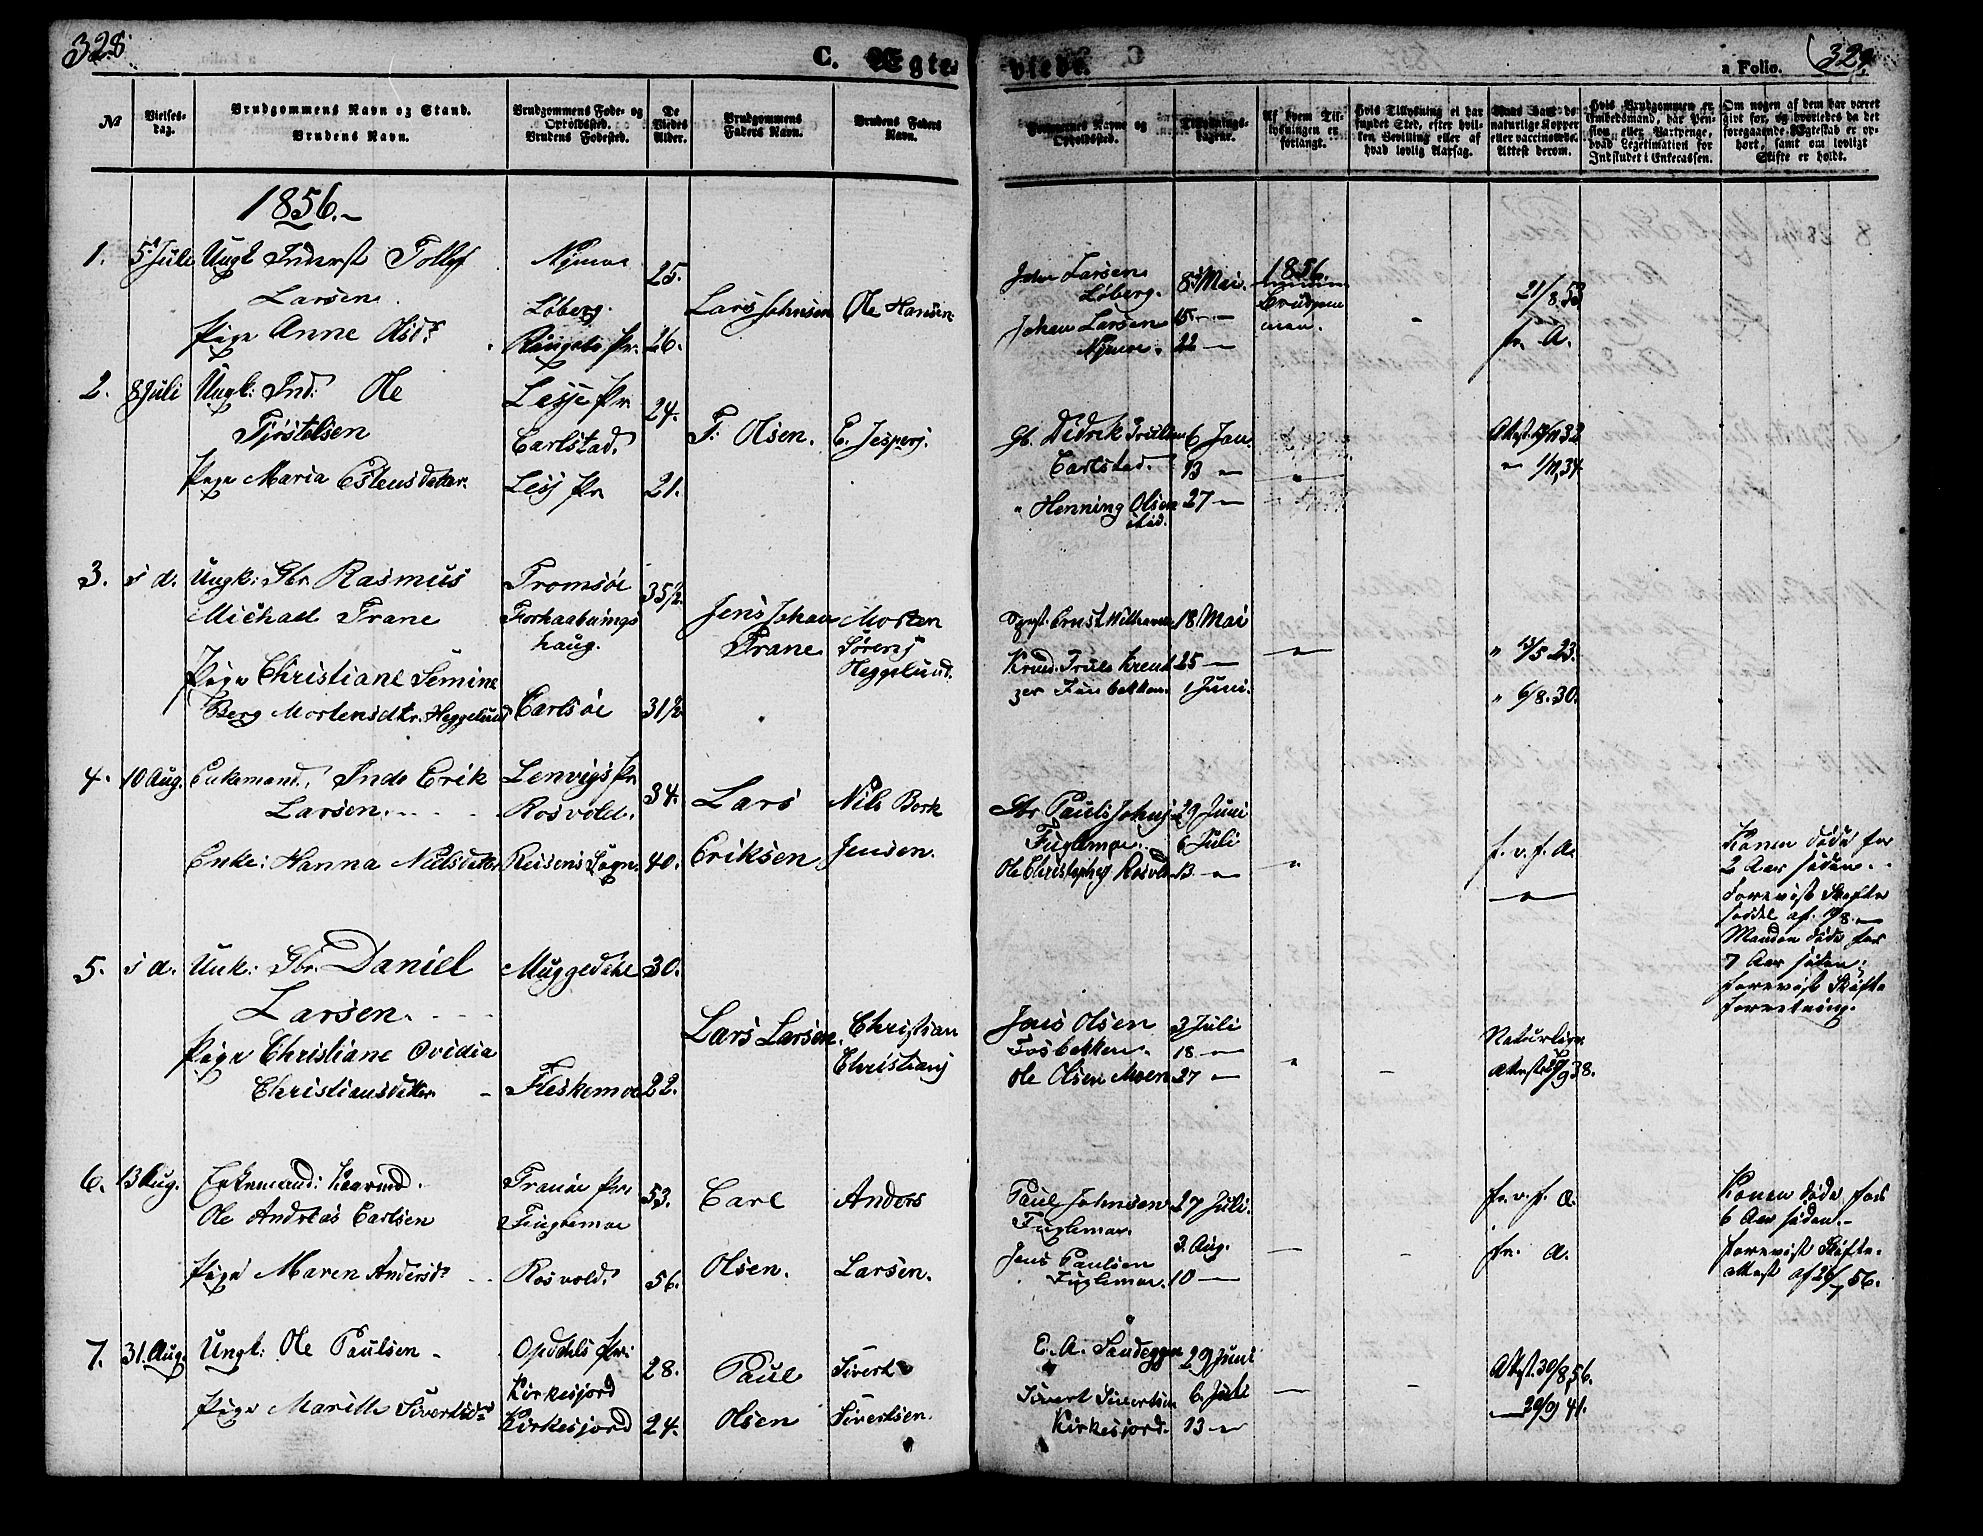 328
C. Ægte-
№
Vielses-
dag.
Brudgommens Navn og Stand.
Brudens Navn.
Brudgommens Føde- og
Opholdssted.
Brudens Fødested.
De
Viedes
Alder.
Brudgommens
Faders Navn.
Brudens Faders
Navn.
1856.
1. 5 Juli Ungk Inderst Tollef Nymoe 25.
Larsen. Løberg. Lars Johnsen Ole Hansen
Pige Anne Olsdr. Ringebo Pr. 26.
2. 8 Juli Ungk: Ind: Ole Lesje Pr 24.
Tjøstelsen Carlstad. T. Olsen. E. Jespers.
Pige Maria Estensdatter Lesj Pr 21.
3. s d. Ungk: Gbr. Rasmus Tromsøe 35½
Michael Trane Forhaabnings Jens Johan Morten
haug. Trane Sørens
Pige Christiane Semine Heggelund.
Berg Mortensdtr. Heggelund Carlsøe 31½
4. 10 Aug. Enkemand, Inds Erik Lenvigs Pr 34. Lars Nils Bork
Larsen. Rosvold.
Enke: Hanna Nilsdatter Reisens Sogn. 40. Eriksen Jensen.
5. s d. Unk: Gbr. Daniel Muggedahl 30.
Larsen. Lars Larsen. Christian
Pige Christiane Ovidia Christians
Christiansdatter. Fleskemoe 22.
6. 13 Aug. Enkemand: Kaarmd. Tranøe Pr. 53. Carl Anders
Ole Andreas Carlsen Fuglemoe
Pige Maren Andersdr Rosvold. 56. Olsen. Larsen.
7. 31. Aug. Ungk: Ole Paulsen Opdals Pr: 28. Paul Sivert
Kirkesjord
Pige Marith Sivertsdr Kirkesjord 24. Olsen Sivertsen.
viede.
a Folio. 329
Forlovernes Navne og
Opholdssted.
Tillysnings-
dagene.
Af hvem Til-
lysningen er
forlangt.
Hvis Tillysning ei har
fundet Sted, efter hvil-
ken Bevilling eller af
hvad lovlig Aarsag.
naturlige Kopper
eller vaccinerede.
Attest derom.
Hvis Brudgommen er
Embedsmand, har Pen-
sion eller Vartpenge,
hvad Legitimation for
Indskudet i Enkecassen.
Om nogen af dem har været
gift før, og hvorledes da det
foregaaende Ægteskab er op-
hørt, samt om lovligt
Skifte er holdt.
John Larsen 8 Mai. 1856.
Løberg. Brudgom 21/8.53
Johan Larsen 15 — men.
Nymoe. 22 — fr. A.
Gb. Didrik Trulsen 6 Jan.
Carlstad. 13 — 1/11,34.
Henning Olsen 27 —
ibid.
Ernst Wilhelm 18 Mai
Krud. Truls Kreut 25 — 13/5 23.
zer Finbakken. 1 Juni. 6/8.30.
Gbr Pauls Johns 29 Juni
Fuglemoe. 6 Juli f. v. f. A. Konen døde for
Ole Christophers Rosvold 13 — 2 Aar siden.
Forevist Skifte
seddel af
Manden døde for
7 Aar siden;
forevist Skifte
forretning.
Jens Olsen 3 Juli Naturlige
Fosbakken. 18 —
Ole Olsen Moen 27 —
Paul Johnsen 27 Juli. fr. v. f. A. Konen døde for
Fuglemoe. 6 Aar siden.
3. Aug. fr. A. forevist Skifte-
Jens Paulsen attest af 26/7 56.
Fuglemoe. 10 —
E. A. Sandeggen 29 Juni Attest. 30/8,56.
Sivert Sivertsen 6. Juli 29/9 41.
Kirkesjord. 13 —